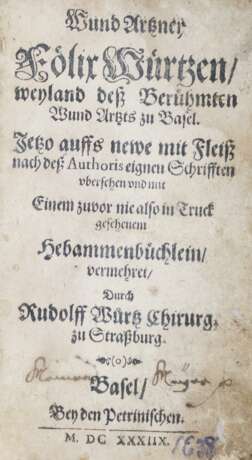 Wund Artzney
Fölix Würtzen/
weyland deß Berühmten
Wund Artzts zu Basel.
Jetzo auffs newe mit Fleiß
nach deß Authoris eignen Schrifften
vbersehen vnd mit
Einem zuvor nie also in Truck
gesehenem
Hebammenbüchlein/
vermehret/
Durch
Rudolff Würtz Chirurg.
zu Straßburg.
Basel/
Bey den Petrinischen.
M. DC XXXIIX.
1638